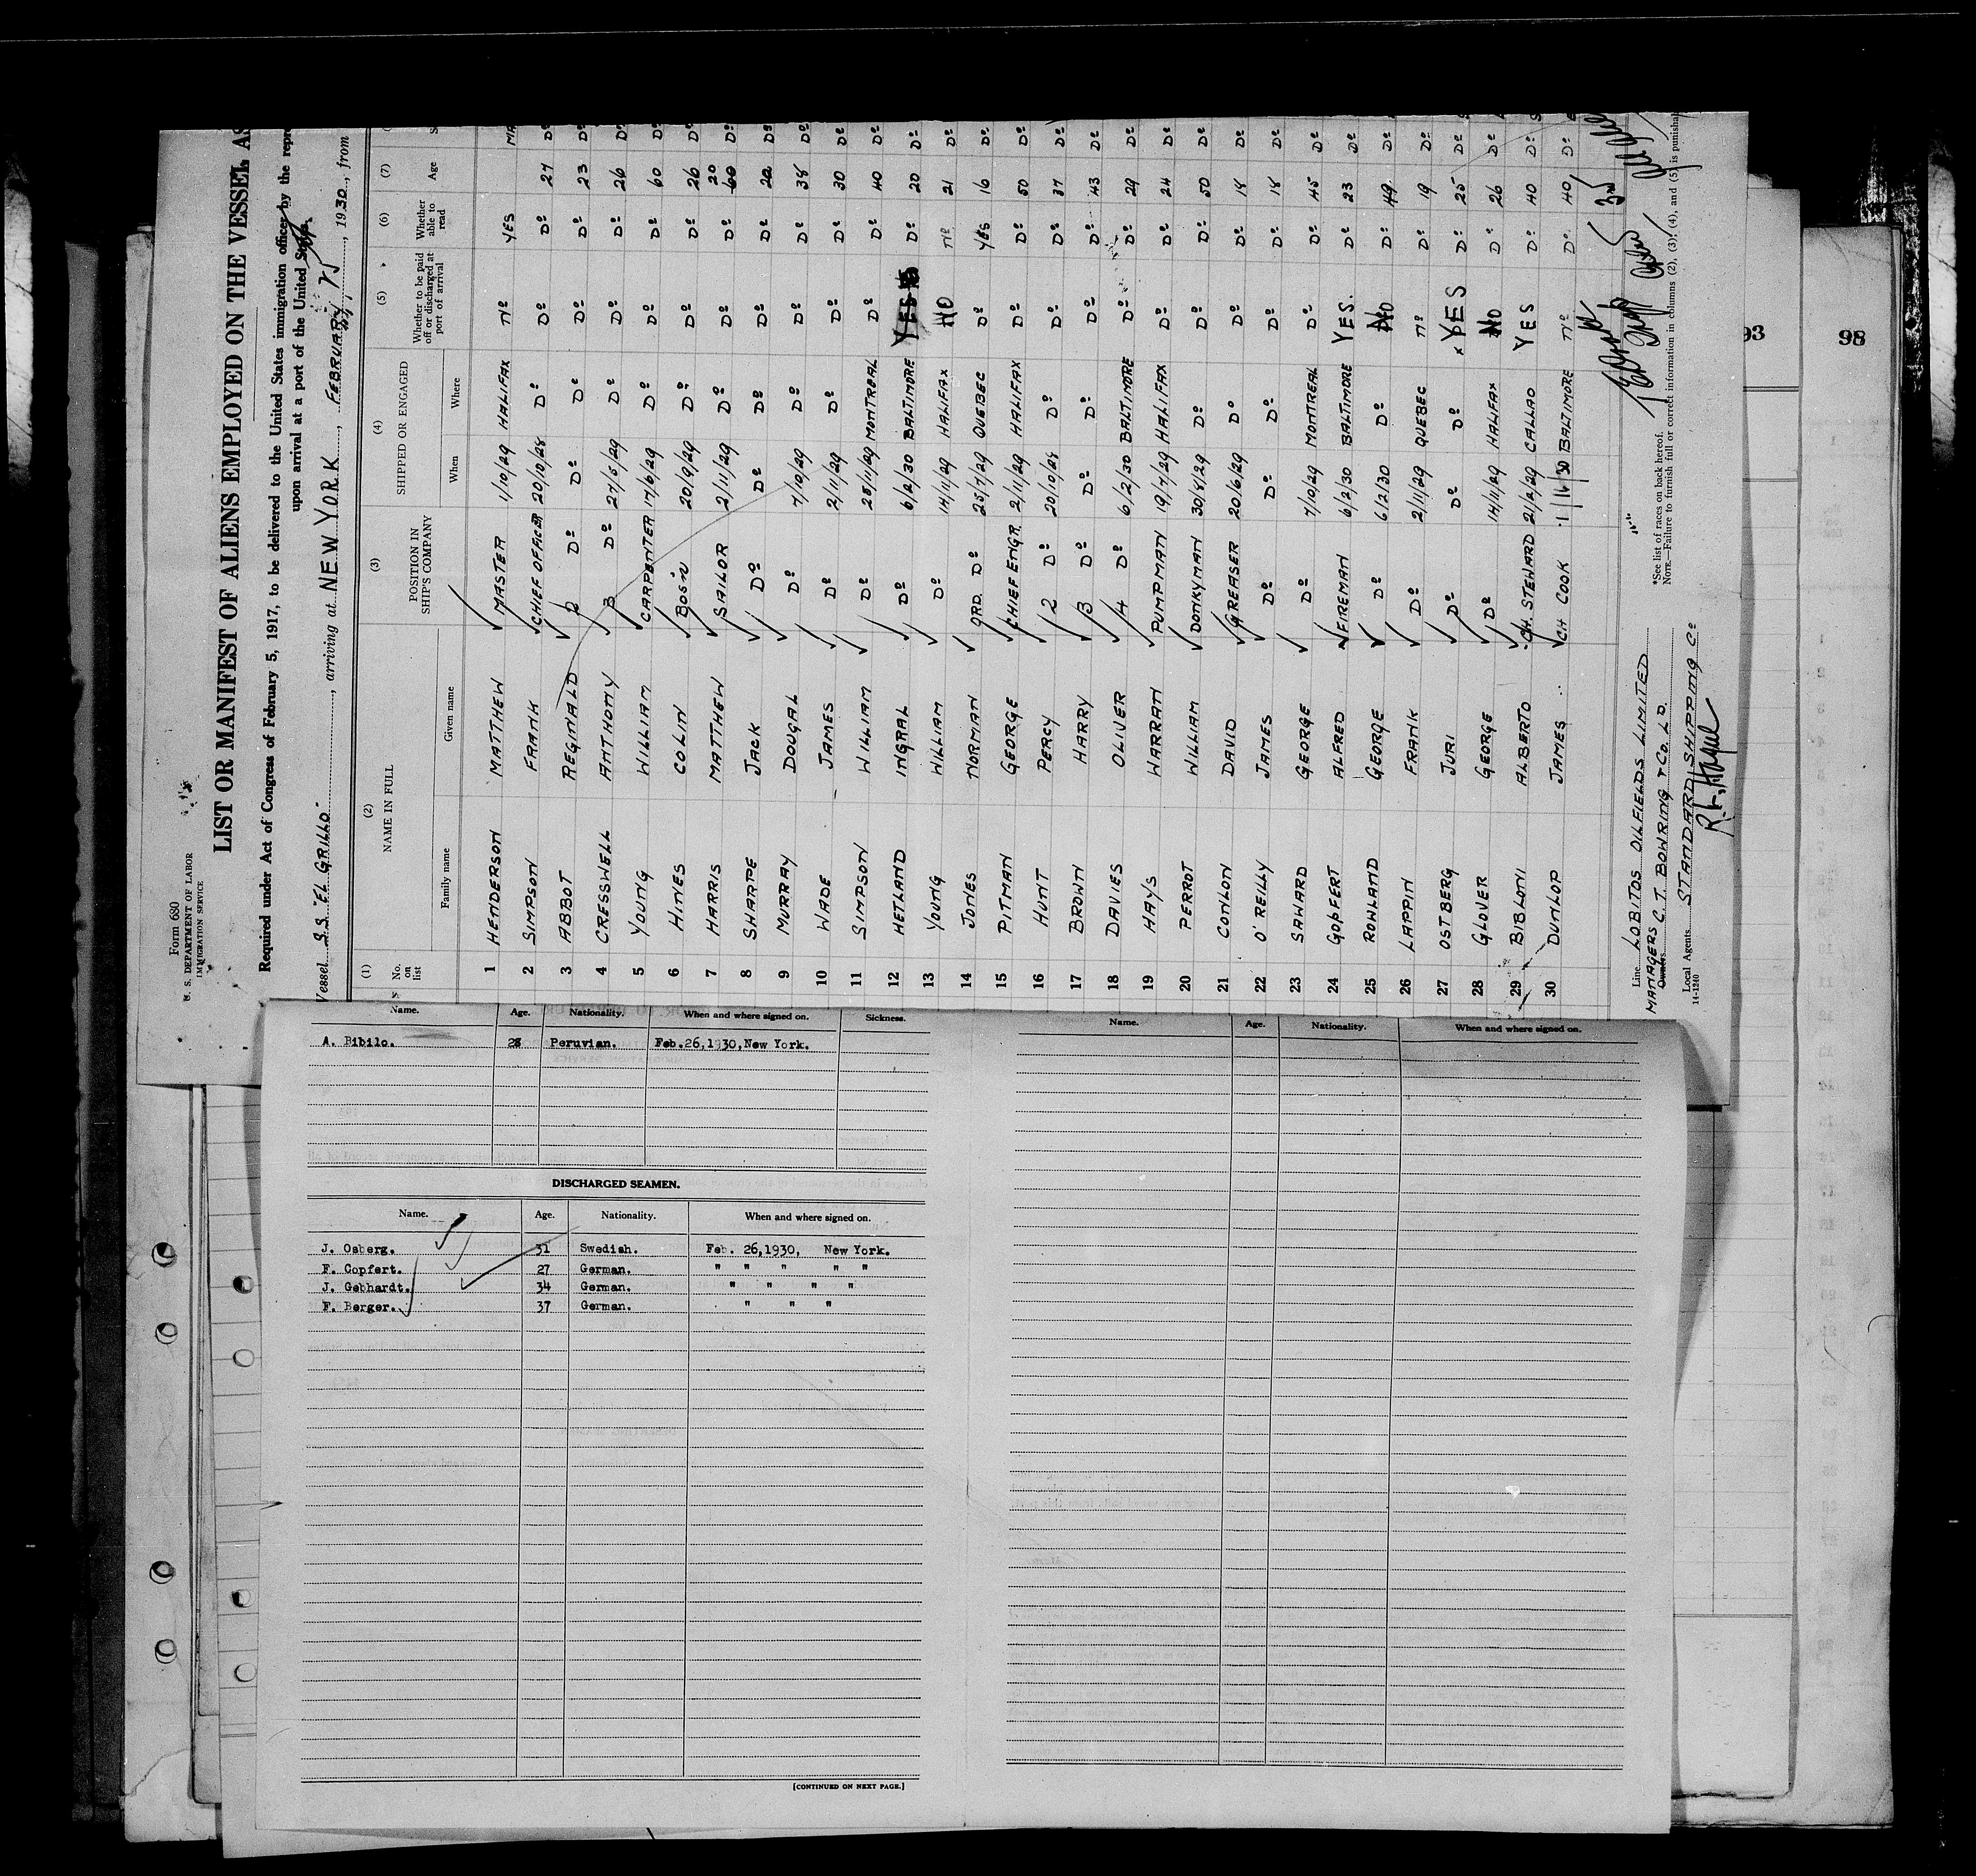 Form 680
U. S. DEPARTMENT OF LABOR
IMMIGRATION SERVICE
LIST OR MANIFEST OF ALIENS EMPLOYED ON THE VESSEL AS
Required under Act of Congress of February 5, 1917, to be delivered to the United States immigration officer by the repre
upon arrival at a port of the United
Vessel S.S. "EL GRILLO", arriving at NEW YORK, FEBRUARY, 1930, from
(1) (2) (3) (4) (5) (6) (7)
No. on list NAME IN FULL POSITION IN SHIP'S COMPANY SHIPPED OR ENGAGED Whether to be paid off or discharged at port of arrival Whether able to read Age
Family name Given name When Where
1 HENDERSON MATTHEW MASTER 1/10/29 HALIFAX No YES
2 SIMPSON FRANK CHIEF OFFICER 20/10/28 Do Do Do 27 Do
3 ABBOT REGINALD 2 Do Do Do Do Do 23 Do
4 CRESSWELL ANTHONY 3 Do 27/5/29 Do Do Do 26 Do
5 YOUNG WILLIAM CARPENTER 17/6/29 Do Do Do 60 Do
6 HINES COLIN BOS'N 20/9/29 Do Do Do 26 Do
7 HARRIS MATTHEW SAILOR 2/11/29 Do Do Do 20 60 Do
8 SHARPE JACK Do Do Do Do Do 20 Do
9 MURRAY DOUGAL Do 7/10/29 Do Do Do 38 Do
10 WADE JAMES Do 2/11/29 Do Do Do 30 Do
11 SIMPSON WILLIAM Do 25/11/29 MONTREAL Do Do 40 Do
12 HETLAND INGRAL Do 6/2/30 BALTIMORE YES Do 20 Do
13 YOUNG WILLIAM Do 14/11/29 HALIFAX NO No 21 Do
14 JONES NORMAN ORD. Do 25/7/29 QUEBEC Do YES 16 Do
15 PITMAN GEORGE CHIEF ENGR. 2/11/29 HALIFAX Do Do 50 Do
16 HUNT PERCY 2 Do 20/10/28 Do Do Do 37 Do
17 BROWN HARRY 3 Do Do Do Do Do 43 Do
18 DAVIES OLIVER 4 Do 6/2/30 BALTIMORE Do Do 29 Do
19 HAYS WARRAN PUMPMAN 19/7/29 HALIFAX Do Do 24 Do
20 PERROT WILLIAM DONKYMAN 30/8/29 Do Do Do 50 Do
21 CONLON DAVID GREASER 20/6/29 Do Do Do 18 Do
22 O'REILLY JAMES Do Do Do Do Do 18 Do
23 SAWARD GEORGE Do 7/10/29 MONTREAL Do Do 45 Do
24 GOPFERT ALFRED FIREMAN 6/2/30 BALTIMORE YES. Do 23 Do
25 ROWLAND GEORGE Do 6/2/30 Do NO Do 49 Do
26 LAPPIN FRANK Do 2/11/29 QUEBEC No Do 19 Do
27 OSTBERG JURI Do Do Do x YES Do 25 Do
28 GLOVER GEORGE Do 14/11/29 HALIFAX NO Do 26 Do
29 BIBLONI ALBERTO CH. STEWARD 21/2/29 CALLAO YES Do 40 Do
30 DUNLOP JAMES CH COOK 1/16/30 BALTIMORE No Do 40 Do
Line LOBITOS OILFIELDS LIMITED
MANAGERS C.T. BOWRING & CO. LD.
Owners
Local Agents STANDARD SHIPPING Co
14-1240
*See list of races on back hereof.
NOTE.—Failure to furnish full or correct information in columns (2), (3), (4), and (5) is punishab
93
98
Name. Age. Nationality. When and where signed on. Sickness.
A. Bibilo. 28 Peruvian. Feb.26,1930,New York.
DISCHARGED SEAMEN.
Name. Age. Nationality. When and where signed on.
J. Osberg. 31 Swedish. Feb. 26,1930, New York.
F. Copfert. 27 German. " " " " "
J. Gebhardt. 34 German. " " " "
F. Berger. 37 German. " " "
[CONTINUED ON NEXT PAGE.]
Name. Age. Nationality. When and where signed on.